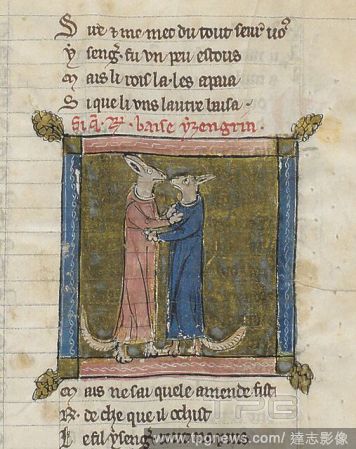 Sur et me mec du tout seur uo9
y seng̃. fu vn peu estous
mais li rois la. les apaia
Si que li vns lautre baisa.
baise yzengrin.
mais ne sai quele amende fist
R. de che que il ochist
Le fil yseng̃
TPG
www.tpgnews.com/ 達志影像